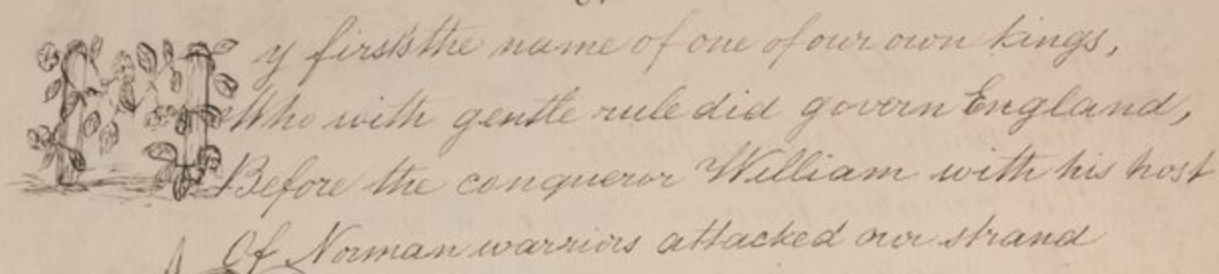 My first's the name of one of our own kings,
Who with gentle rule did govern England,
Before the conqueror William with his host
Of Norman warriors attacked our strand